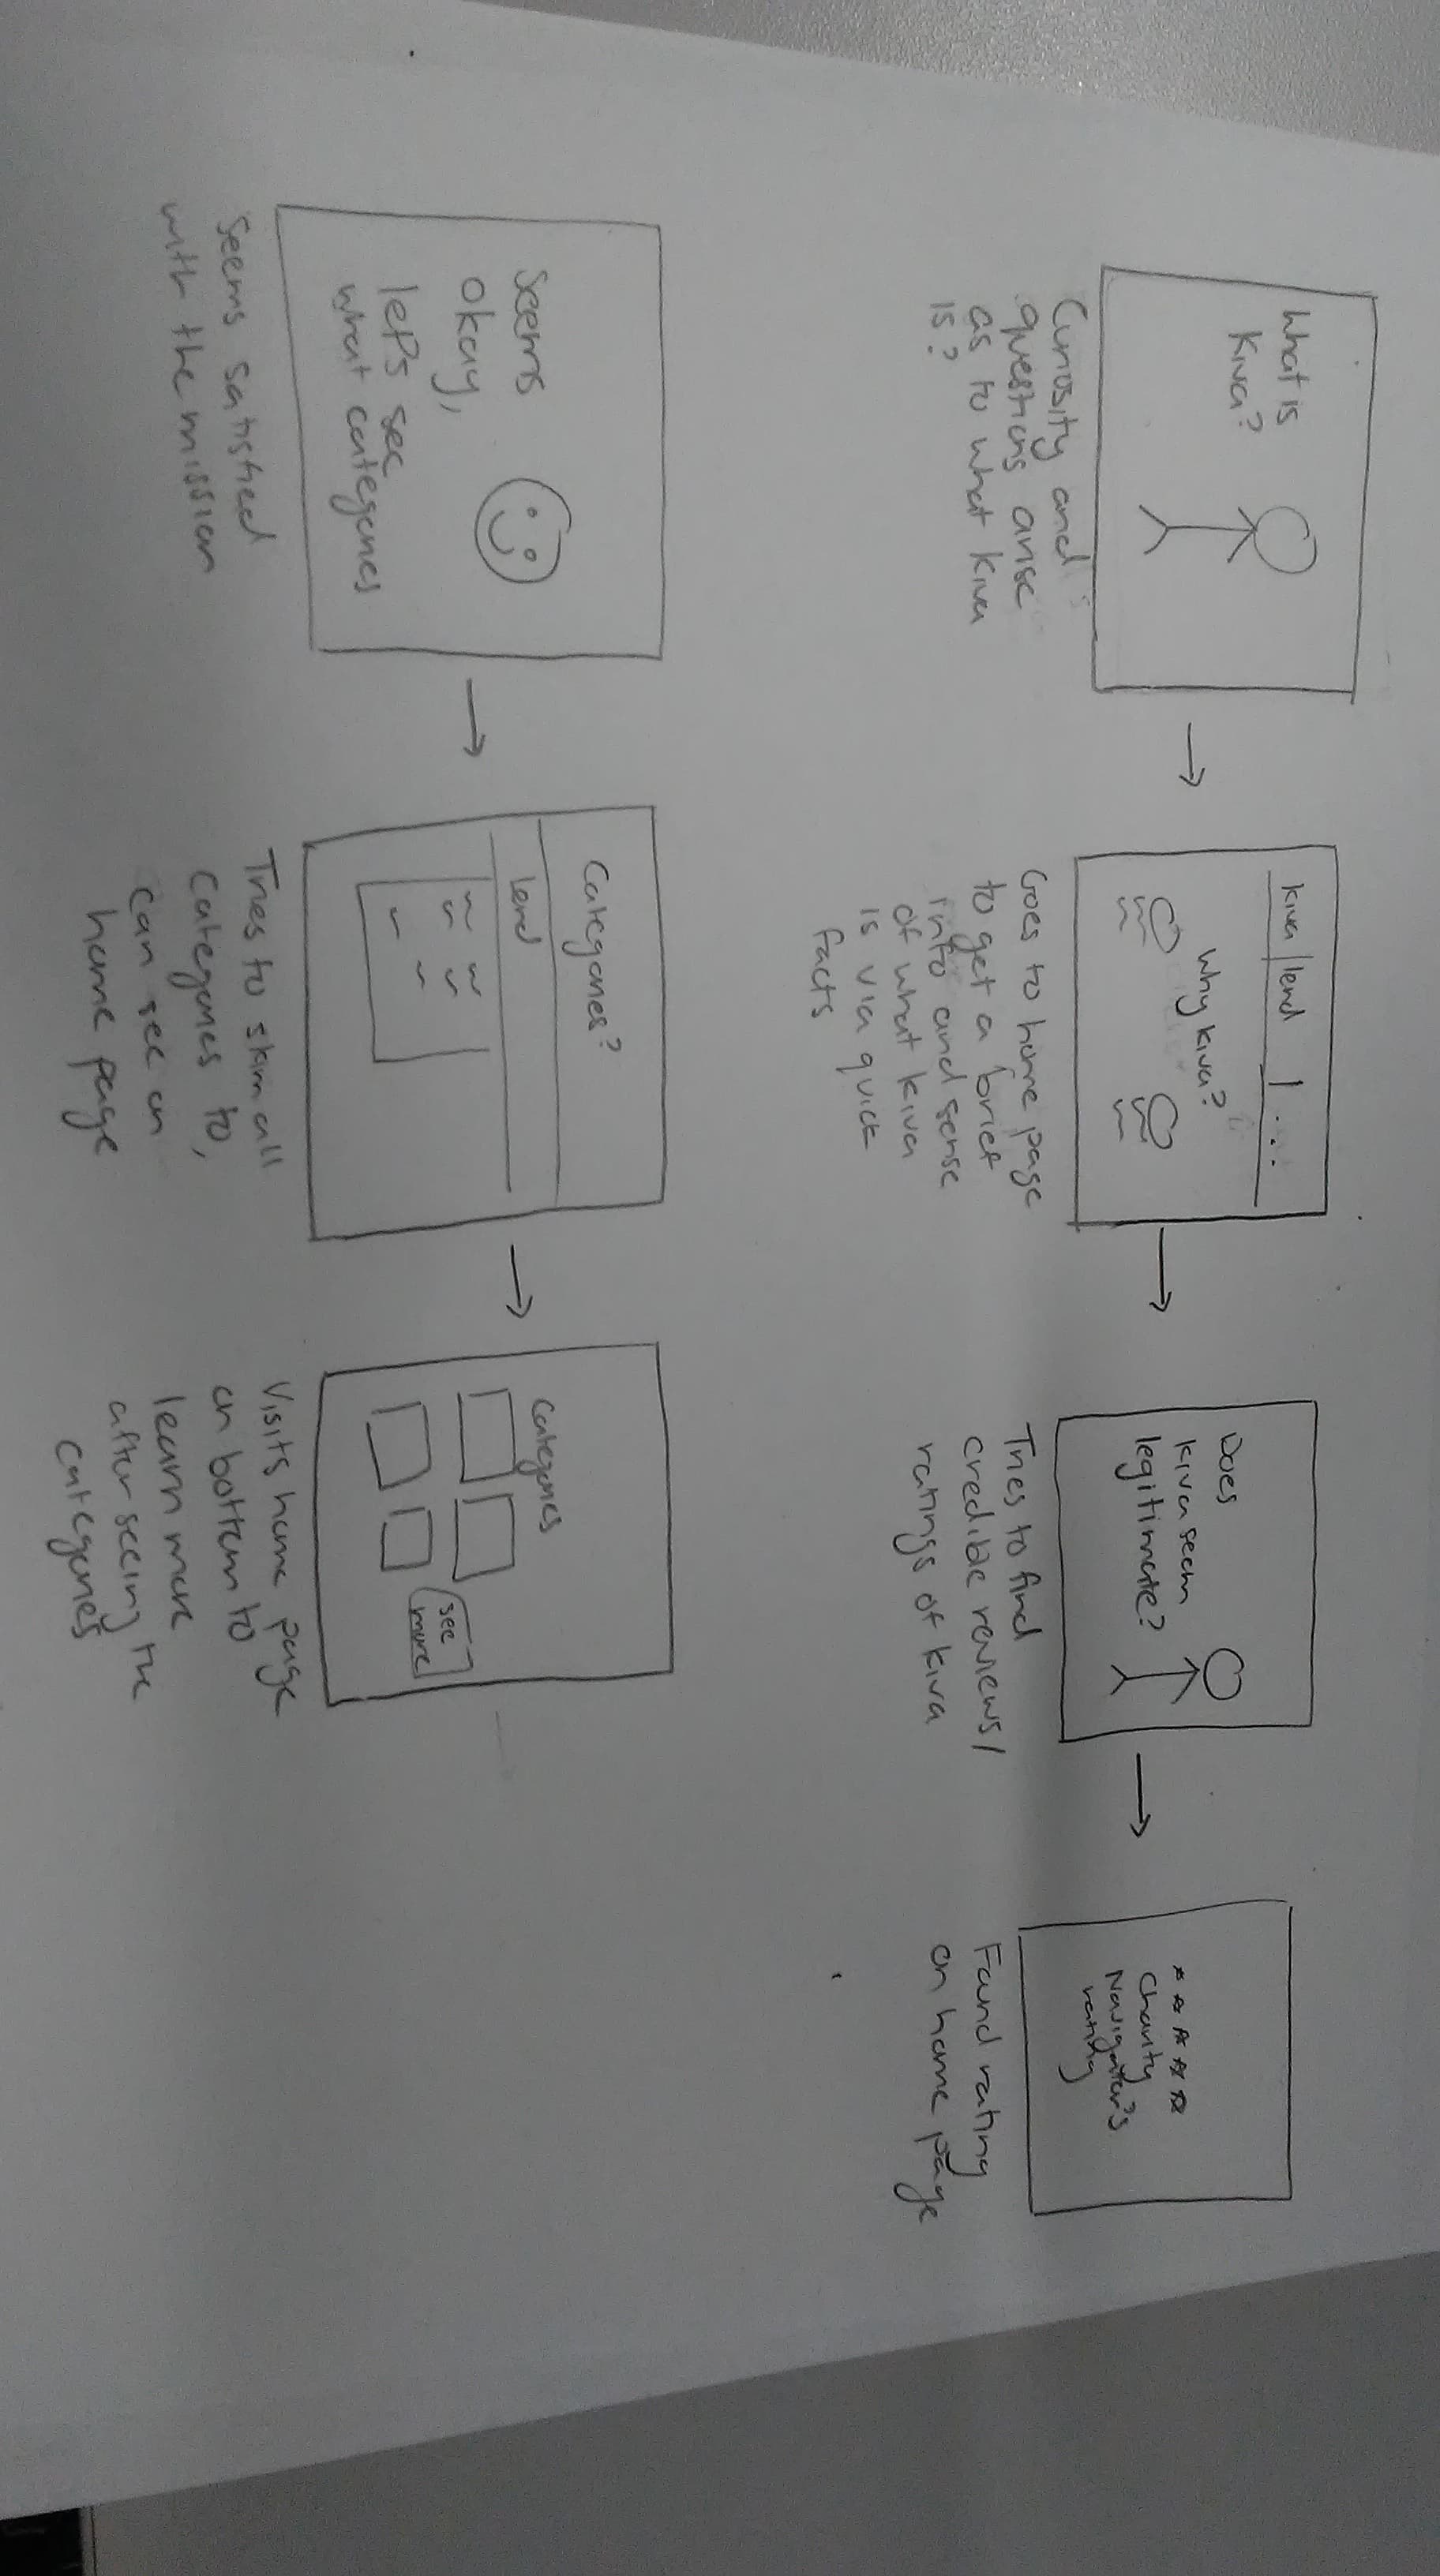 What is
Kiva?
Curiosity and
questions arise
as to what kiva
is?
kiva | lend | ...
Why kiva?
Goes to home page
to get a brief
info and sense
of what kiva
is via quick
facts
Does
kiva seem
legitimate?
Tries to find
credible reviews/
ratings of kiva
Charity
Navigator's
rating
Found rating
on home page
Seems
okay,
lets see
what categories
Seems satisfied
with the mission
Categories?
lend
Tries to skim all
categories to,
can see on
home page
Categories
see
more
Visits home page
on bottom to
learn more
after seeing the
categories